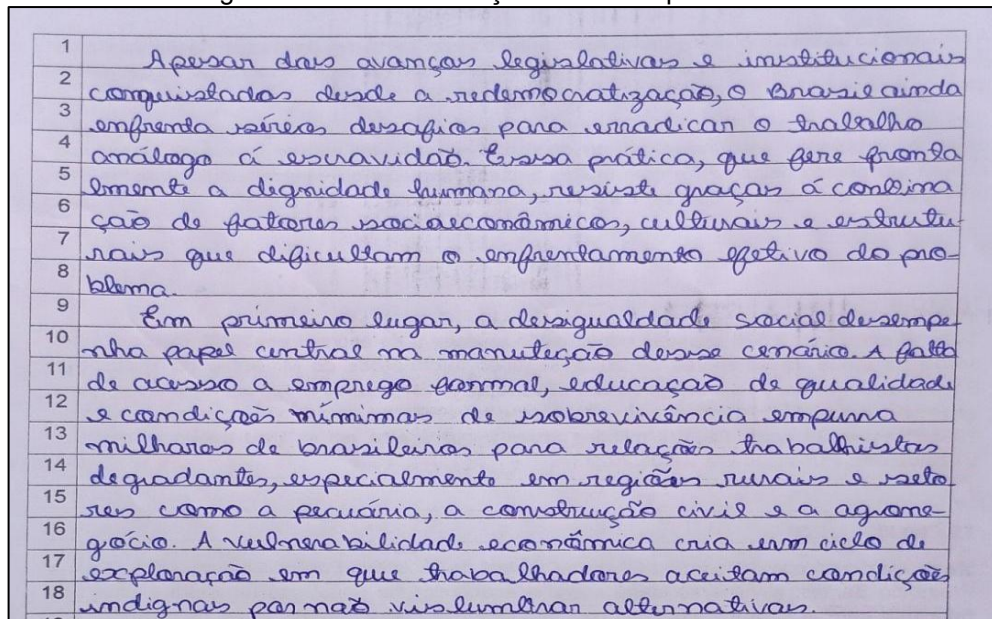 1 Apesar dos avanços legislativos e institucionais
2 conquistados desde a redemocratização, o Brasil ainda
3 enfrenta sérios desafios para erradicar o trabalho
4 análogo á escravidão. Essa prática, que fere fronta
5 lmente a dignidade humana, resiste graças á combina
6 ção de fatores socioeconômicos, culturais e estrutu-
7 rais que dificultam o enfrentamento efetivo do pro-
8 blema.
9 Em primeiro lugar, a desigualdade social desempe
10 nha papel central na manuteção desse cenário. A falta
11 de acesso a emprego formal, educação de qualidade
12 e condições mínimas de sobrevivência empurra
13 milhares de brasileiros para relações trabalhistas
14 degradantes, especialmente em regiões rurais e seto
15 res como a pecuária, a construção civil e a agrone-
16 gócio. A vulnerabilidade econômica cria um ciclo de
17 exploração em que trabalhadores aceitam condições
18 indignas por não vislumbrar alternativas.